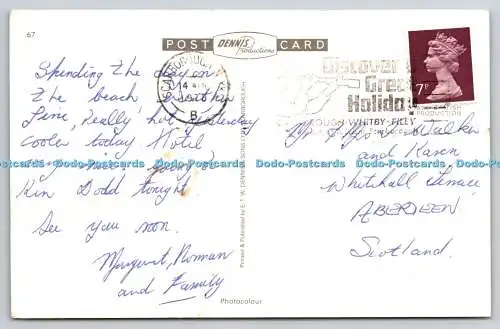 67
POST DENNIS Productions CARD
SCARBOROUGH
14 AUG
B
Discover
Great
Holiday
SCARBOROUGH-WHITBY-FILEY
7P
Spending the day on
the beach, weather
fine, Really hot yesterday
cooler today Hotel
very nice, going to
Ken Dodd tonight
See you soon.
Margaret, Norman
and Family
Printed & Published by E.T.W. DENNIS & SONS LTD. SCARBOROUGH
Mr & Mrs Walker
and Karen
Whitehall Terrace
ABERDEEN
Scotland.
Photocolour
Dodo-Postcards Dodo-Postcards Dodo-Postcards Dodo-Postcards Dodo-Postcards Dodo-Postcards